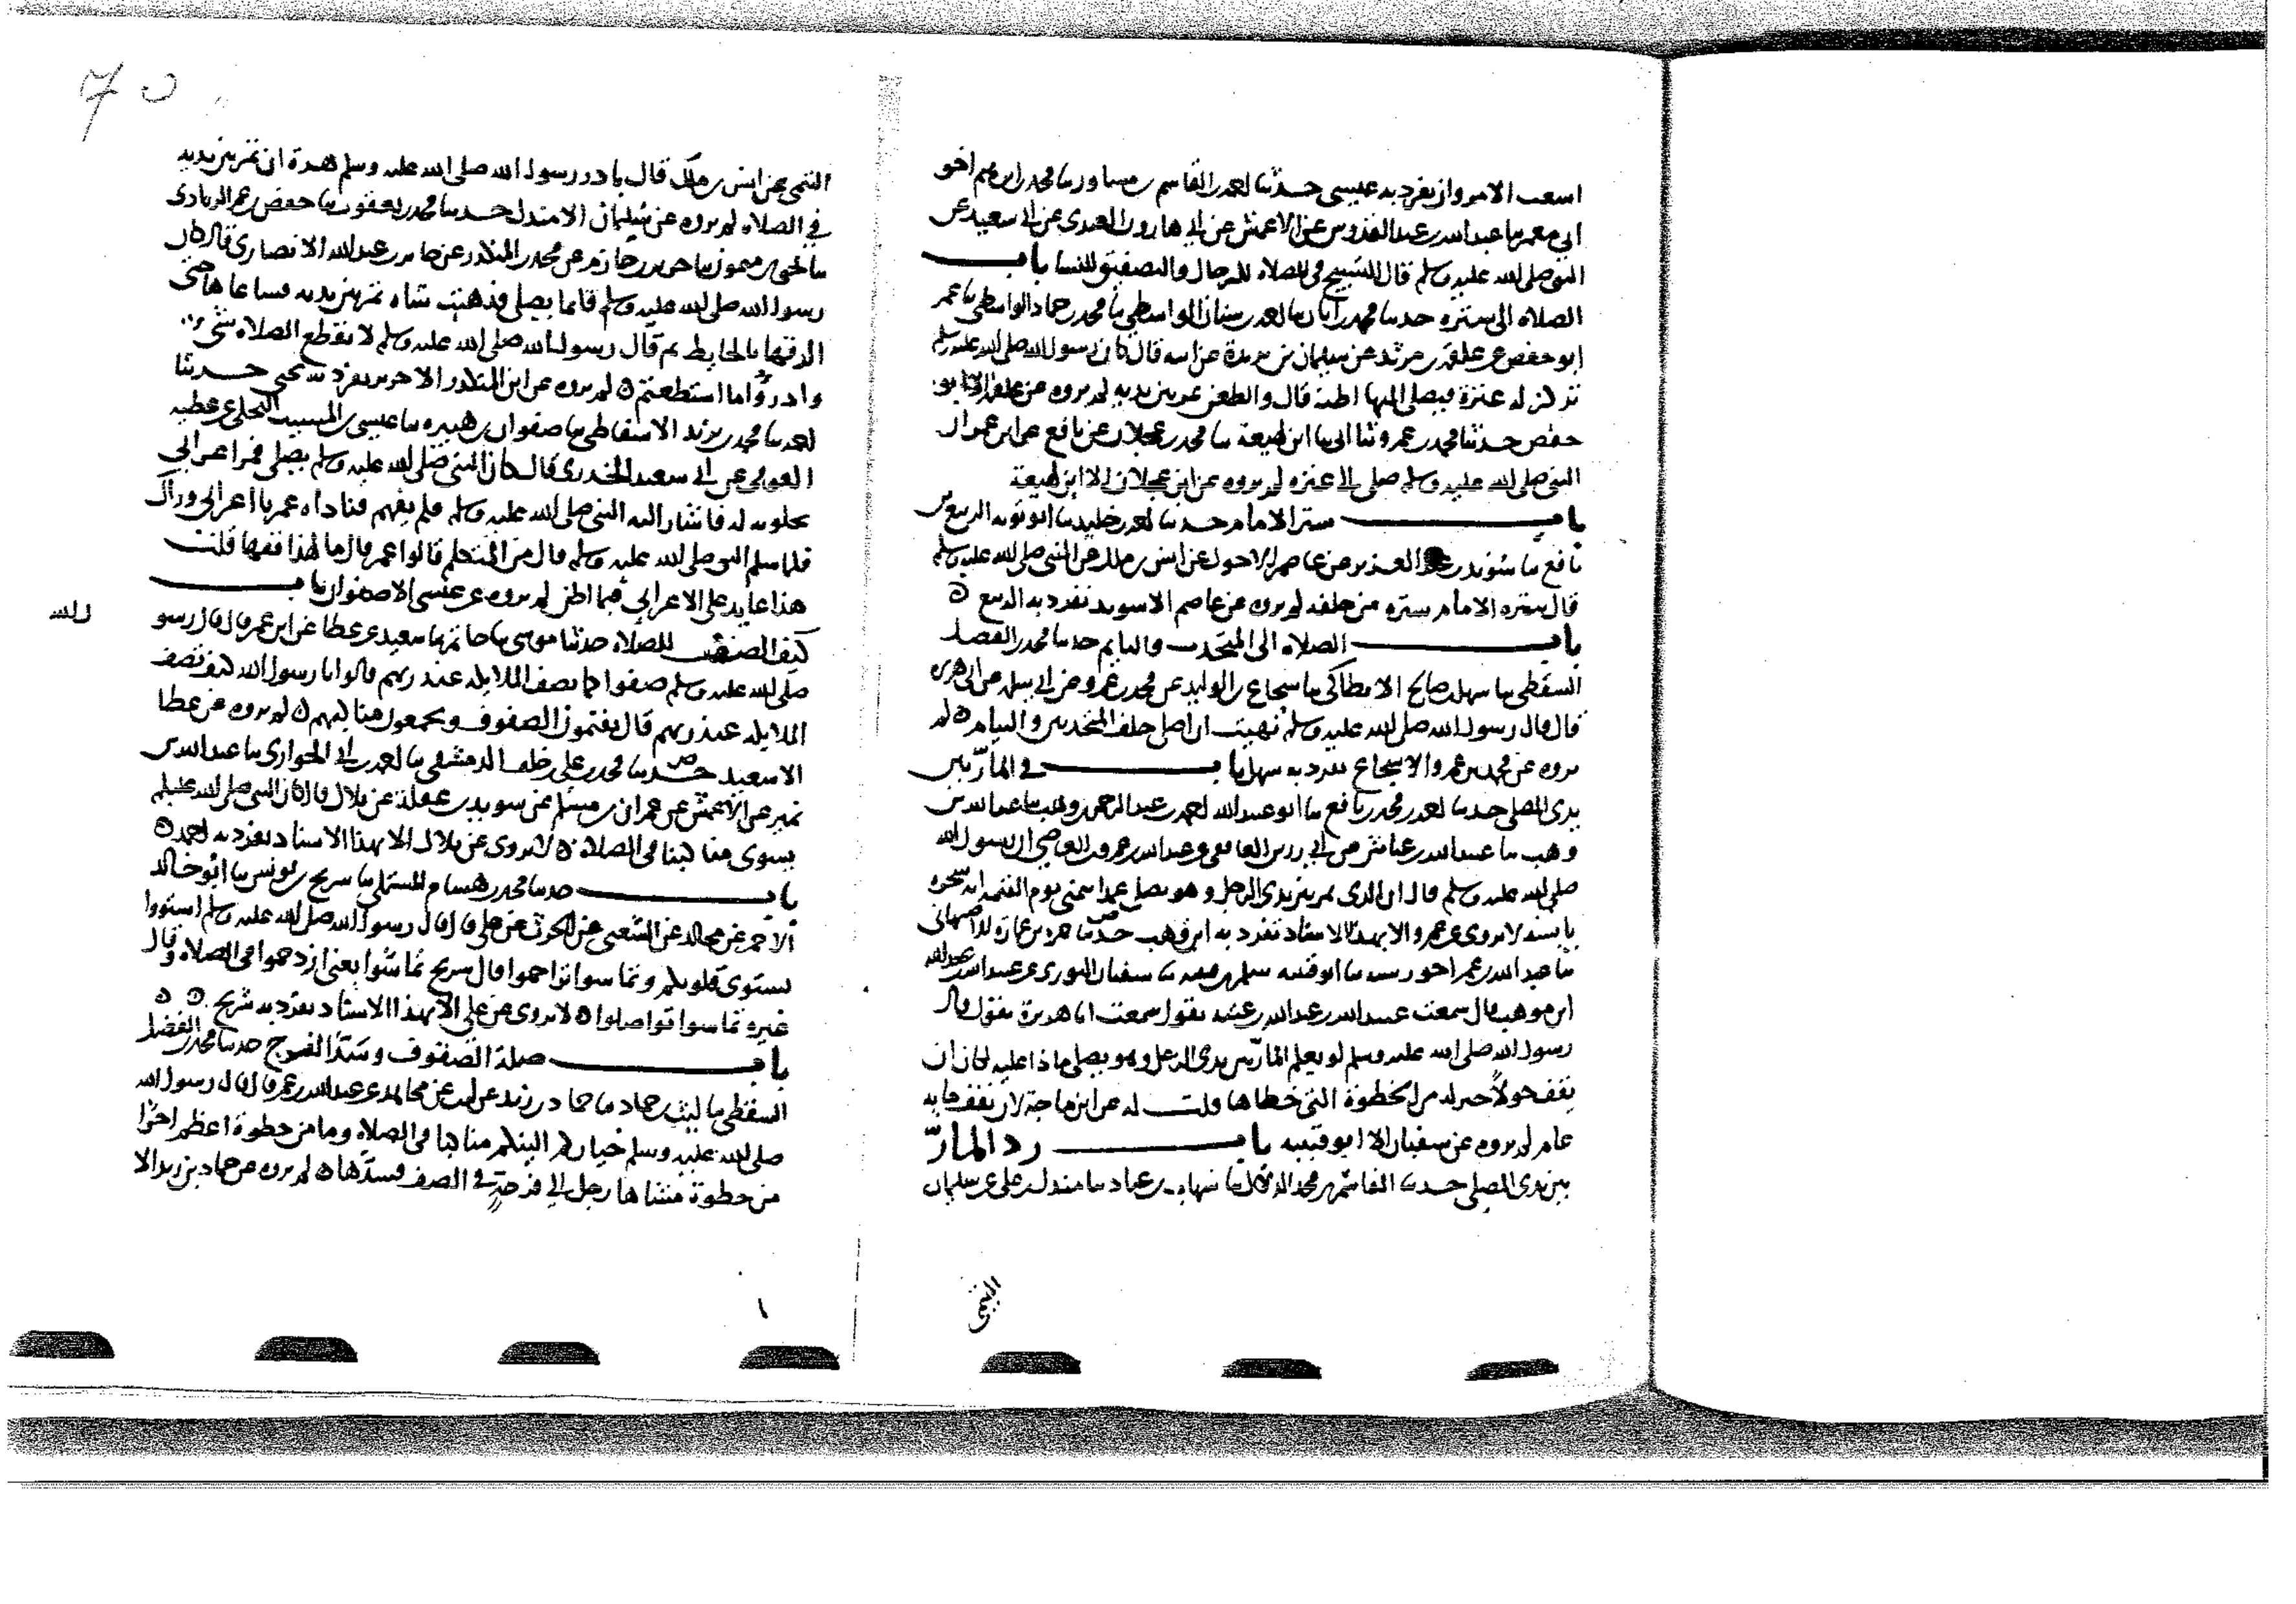 اسعث الا مروان تفرد به عيسى حدثنا احمد بن القاسم بن مساور نا محمد بن ابرهيم اخو
ابي معمر نا عبد الله بن عبد القدوس عن الاعمش عن ابي هارون العبدى عن ابي سعيد عن
النبي صلى الله عليه وسلم قال التسبيح في الصلاه للرجال والتصفيق للنسا باب
الصلاه الى ستره حدثنا محمد بن ابان نا احمد بن سنان الواسطي نا محمد بن حماد الواسطي نا عمر
ابو حفص عن علقمه بن مرثد عن سليمان بن بريدة عن ابيه قال كان رسول الله صلى الله عليه وسلم
تركز له عنزة فيصلى اليها اظنه قال والظعن تمر بين يديه لم يروه عن علقمه الا ابو
حفص حدثنا محمد بن عمرو ثنا ابى نا ابن لهيعة نا محمد بن عجلان عن نافع عن ابن عمر ان
النبى صلى الله عليه وسلم صلى الى عنزه لم يروه عن ابن عجلان الا ابن لهيعة
باب ستر الامام حدثنا احمد بن خليد نا ابو توبه الربيع بن
نافع نا سويد بن عبد العزيز عن عاصم الاحول عن انس بن ملك عن النبى صلى الله عليه وسلم
قال ستره الامام ستره من خلفه لم يروه عن عاصم الا سويد تفرد به الربيع ه
باب الصلاه الى المتحدث والنايم حدثنا محمد بن الفضل
السقطى نا سهل بن صالح الانطاكى نا شجاع بن الوليد عن محمد بن عمرو عن ابي سلمه عن ابى هريره
قال قال رسول الله صلى الله عليه وسلم نهيت ان اصلى خلف المتحدثين والنيام ه لم
يروه عن محمد بن عمرو الا شجاع تفرد به سهل باب في المارّ بين
يدى المصلى حدثنا احمد بن محمد بن نافع نا ابو عبيد الله احمد بن عبد الرحمن بن وهب نا عبد الله بن
وهب نا عبد الله بن عياش عن ابي رزين الغافقى عن عبد الله بن عمرو بن العاصى ان رسول الله
صلى الله عليه وسلم قال ان الذى يمر بين يدى الرجل وهو يصلى عمدا يتمنى يوم القيمه انه شجره
يابسه لا يروى عن عمرو الا بهذا الاسناد تفرد به ابن وهب حدثنا حمزه بن عمارة الاصبهانى
نا عبد الله بن عمر اخو رسته نا ابو قتيبه سلم بن قتيبه نا سفيان الثورى عن عبيد الله بن عبد الله
ابن موهب قال سمعت عبيد الله بن عبد الله بن عتبه يقول سمعت ابا هريرة يقول قال
رسول الله صلى الله عليه وسلم لو يعلم المارّ بين يدى الرجل وهو يصلى ماذا عليه لكان ان
يقف حولاً خير له من الخطوة التى خطاها قلت له عن ابن ماجة لان يقف مايه
عام لم يروه عن سفيان الا ابو قتيبه باب رد المارّ
بين يدى المصلى حدثنا القاسم بن محمد الدلال نا شهاب بن عباد نا مندل بن على عن سليمان
التيمى
التيمى عن انس بن ملك قال بادر رسول الله صلى الله عليه وسلم هرة ان تمر بين يديه
في الصلاه لم يروه عن سليمان الا مندل حدثنا محمد بن يعقوب نا حفص بن عمر الربادى
نا يحيى بن ميمون نا جرير بن حازم عن محمد بن المنكدر عن جابر بن عبد الله الانصارى قال كان
رسول الله صلى الله عليه وسلم قائما يصلى فذهبت شاه تمر بين يديه فساعاها حتى
الزقها بالحايط ثم قال رسول الله صلى الله عليه وسلم لا يقطع الصلاه شىء
وادرؤا ما استطعتم ه لم يروه عن ابن المنكدر الا جرير تفرد به يحيى حدثنا
احمد نا محمد بن يزيد الاسفاطى نا صفوان بن هبيره نا عيسى بن المسيب البجلى عن عطيه
العوفي عن ابي سعيد الخدرى قال كان النبى صلى الله عليه وسلم يصلى فمر اعرابي
بحلوبه له فاشار اليه النبى صلى الله عليه وسلم فلم يفهم فناداه عمر يا اعرابى وراك
فلما سلم النبى صلى الله عليه وسلم قال من المتكلم قالوا عمر قال ما لهذا فقها قلت
هذا عايد على الاعرابي فيما اظن لم يروه عن عيسى الا صفوان باب
كيف الصف للصلاه حدثنا موسى نا حاتم نا سعيد عن عطا عن ابن عمر قال قال رسو
ل الله
صلى الله عليه وسلم صفوا كما تصف الملايكه عند ربهم قالوا يا رسول الله كيف تصف
الملايكه عند ربهم قال يقيمون الصفوف ويجمعون مناكبهم ه لم يروه عن عطا
الا سعيد حدثنا محمد بن على بن خلف الدمشقى نا احمد بن ابي الحوارى نا عبد الله بن
نمير عن الاعمش عن عمران بن مسلم عن سويد بن غفلة عن بلال قال كان النبي صلى الله عليه وسلم
يسوى مناكبنا فى الصلاة ه لا يروى عن بلال الا بهذا الاسناد تفرد به احمد ه
باب حدثنا محمد بن هشام المستملى نا سريج بن يونس نا ابو خالد
الاحمر عن مجالد عن الشعبى عن الحرث عن على قال قال رسول الله صلى الله عليه وسلم استووا
تستوى قلوبكم وتماسوا تراحموا قال سريج تماسوا يعنى ازدحموا فى الصلاه وقال
غيره تماسوا تواصلوا ه لا يروى عن على الا بهذا الاسناد تفرد به شريج ه ه
باب صلة الصفوف وسَدّ الفرج حدثنا محمد بن الفضل
السقطى نا ليث بن حماد نا حماد بن زيد عن ليث عن مجاهد عن عبد الله بن عمر قال قال رسول الله
صلى الله عليه وسلم خياركم الينكم مناكبا فى الصلاه وما من خطوة اعظم اجرًا
من خطوة مشاها رجل الي فرجةٍ في الصف فسدّها ه لم يروه عن حماد بن زيد الا